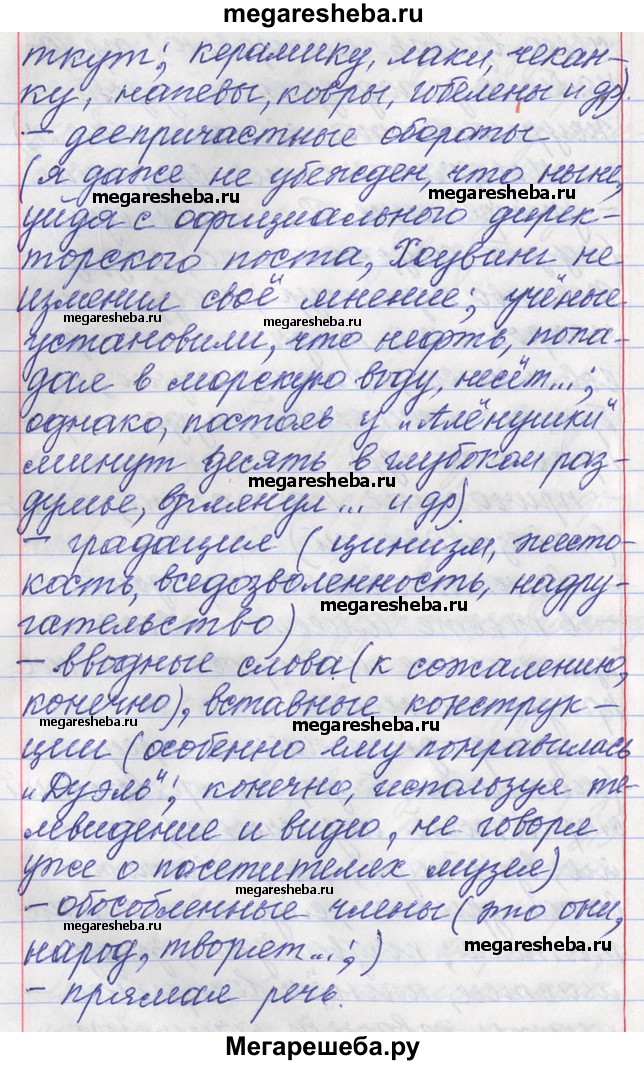 megaresheba.ru
ткут; керамику, лаки, чекан-
ку, напевы, ковры, гобелены и др).
– деепричастные обороты
(я даже не убежден, что ныне,
megaresheba.ru megaresheba.ru
уйдя с официального дирек-
торского поста, Хоувинг не
изменил своё мнение; учёные
megaresheba.ru megaresheba.ru
установили, что нефть, попа-
дая в морскую воду, несёт...;
однако, постояв у „Алёнушки“
минут десять в глубоком раз-
megaresheba.ru
думье, взглянул... и др).
– градация (цинизм, жесто-
кость, вседозволенность, надру-
megaresheba.ru
гательство)
– вводные слова (к сожалению,
конечно), вставные конструк-
megaresheba.ru megaresheba.ru
ции (особенно ему понравилась
„Дуэль“; конечно, используя те-
левидение и видео, не говоря
уже о посетителях музея)
megaresheba.ru
– обособленные члены (это они,
народ, творят...;)
megaresheba.ru
– прямая речь.
Мегарешеба.ру